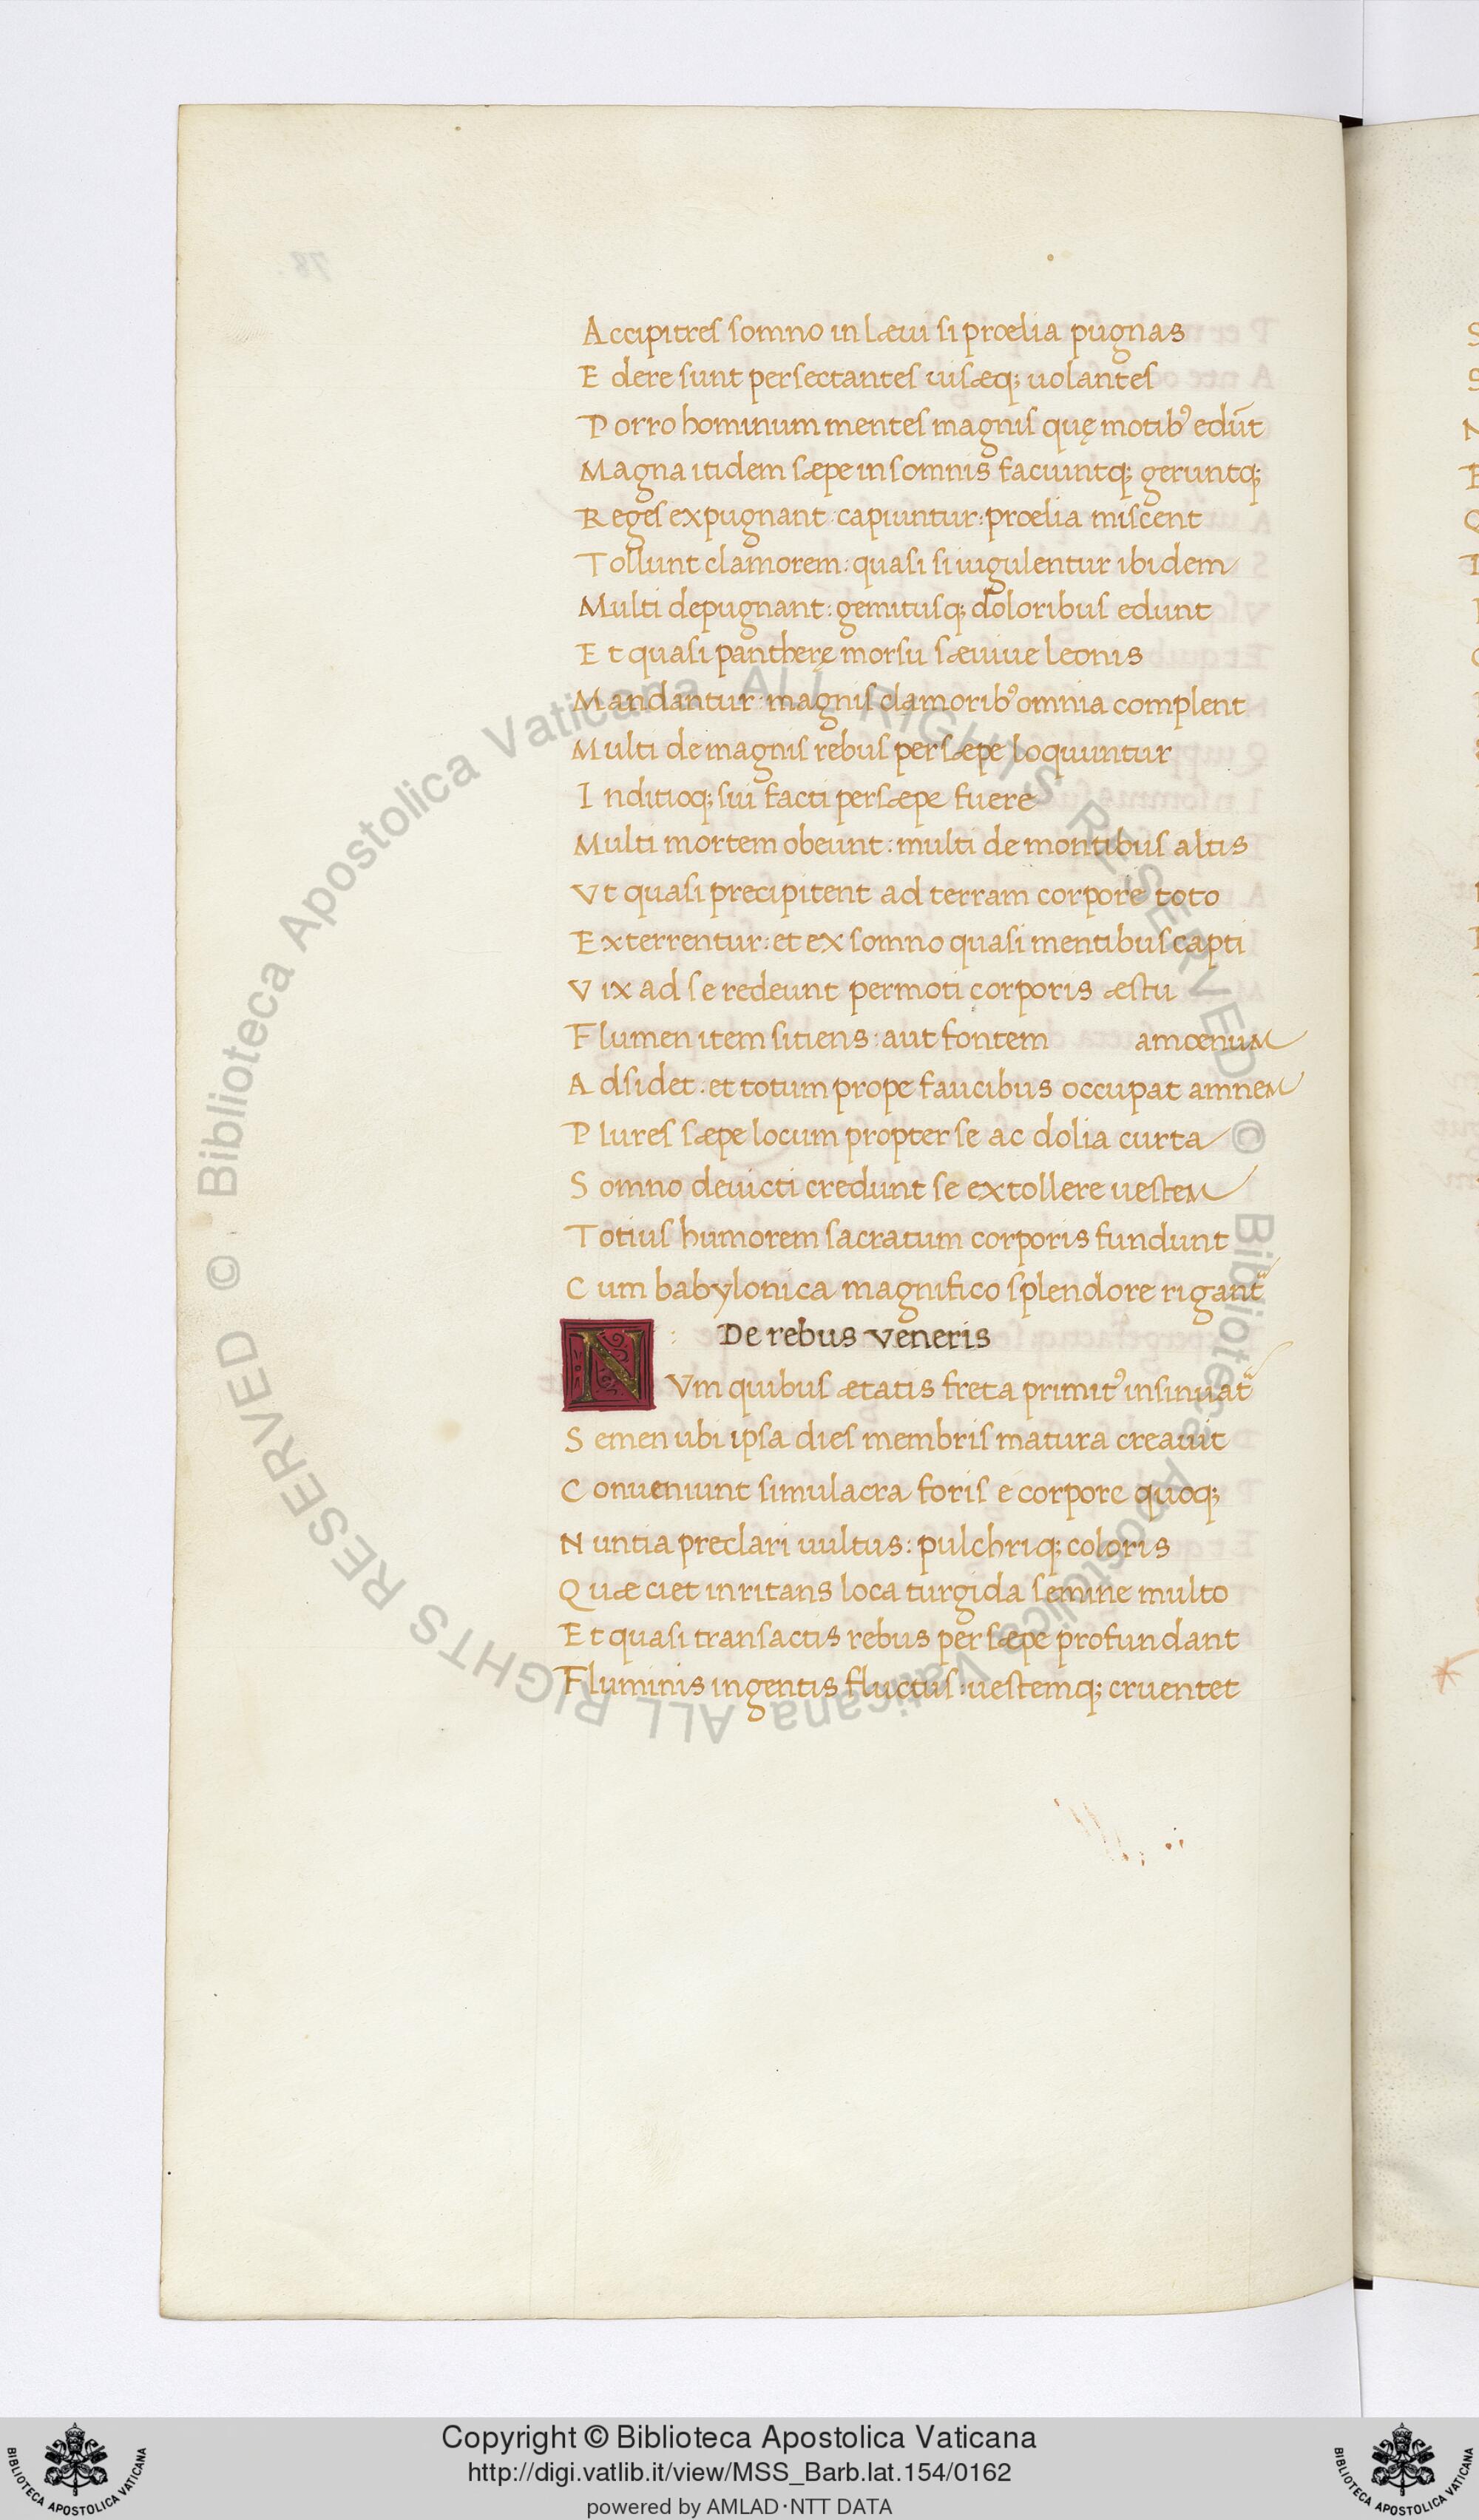 Accipitres somno in lævi si prœlia pugnas
Edere sunt persectantes uisæq; uolantes
Porro hominum mentes magnis quę motibꝰ edūt
Magna itidem sæpe in somnis faciuntq; geruntq;
Reges expugnant: capiuntur: prœlia miscent
Tollunt clamorem: quasi si iugulentur ibidem
Multi depugnant: gemitusq; doloribus edunt
Et quasi pantherę morsu sæuiue leonis
Mandantur magnis clamoribꝰ omnia complent
Multi de magnis rebus persæpe loquuntur
Inditioq; sui facti persæpe fuere
Multi mortem obeunt: multi de montibus altis
Vt quasi precipitent ad terram corpore toto
Exterrentur: et ex somno quasi mentibus capti
Vix ad se redeunt permoti corporis æstu
Flumen item sitiens: aut fontem amœnum
Adsidet: et totum prope faucibus occupat amnem
Plures sæpe locum propter se ac dolia curta
Somno deuicti credunt se extollere uestem
Totius humorem sacratum corporis fundunt
Cum babylonica magnifico splendore rigant᷑
De rebus Veneris
NVm quibus ætatis freta primitꝰ insinuat᷑
Semen ubi ipsa dies membris matura creauit
Conueniunt simulacra foris e corpore quoq;
Nuntia preclari uultus: pulchriq; coloris
Quæ ciet inritans loca turgida semine multo
Et quasi transactis rebus persæpe profundant
Fluminis ingentis fluctus: uestemq; cruentet
© Biblioteca Apostolica Vaticana ALL RIGHTS RESERVED © Biblioteca Apostolica Vaticana ALL RIGHTS RESERVED
Copyright © Biblioteca Apostolica Vaticana
http://digi.vatlib.it/view/MSS_Barb.lat.154/0162
powered by AMLAD·NTT DATA
BIBLIOTECA APOSTOLICA VATICANA
BIBLIOTECA APOSTOLICA VATICANA